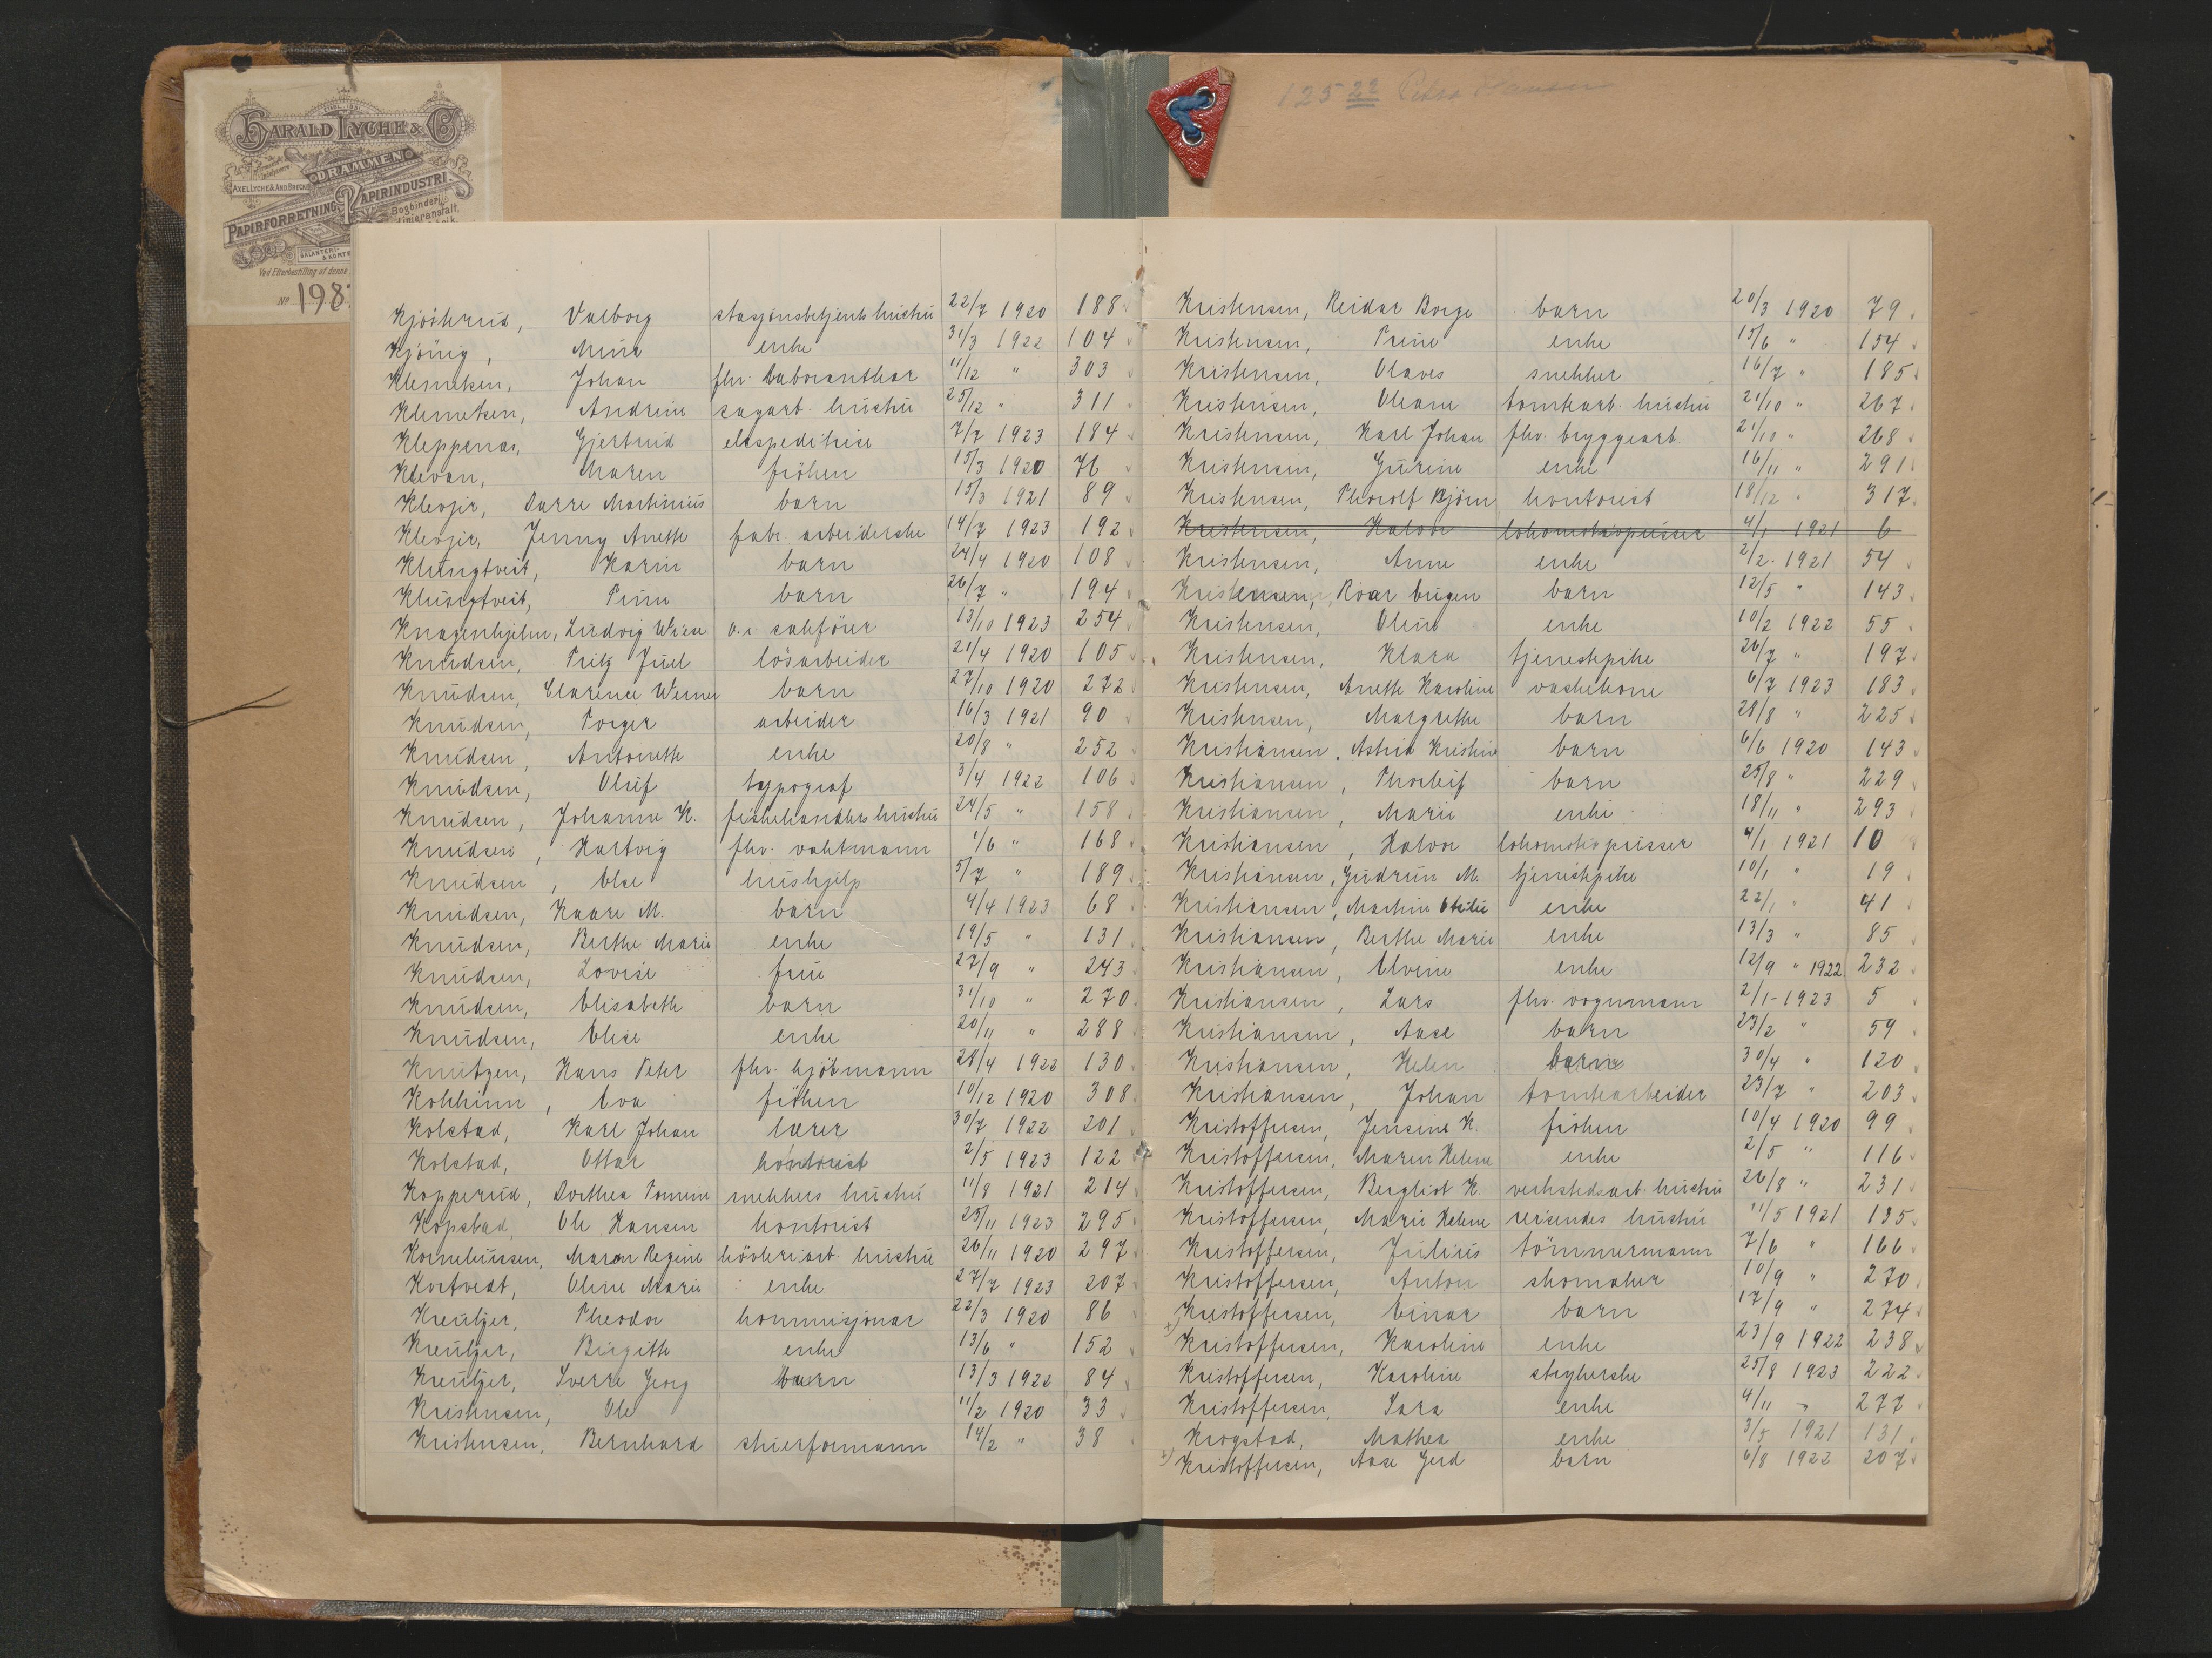 HARALD LYCHE & Co
DRAMMEN
AXEL LYCHE & AND. BRECKE
PAPIRFORRETNING PAPIRINDUSTRI.
Bogbinderi,
Linieranstalt,
GALANTERI-
& KORTE
Ved Efterbestilling af denne
No 198
Kjöshrud, Valborg stasjonsbetjents hustru 22/7 1920 188
Kjönig, Mina enke 31/3 1922 104
Klemetsen, Johan fhv. 11/12 " 303
Klemetsen, Andrine sagarb. hustru 25/12 " 311
Kleppenas, Gjertrud ekspeditrise 7/7 1923 184
Klevan, Maren fröken 15/3 1920 76
Klevjer, Sverre Martinius barn 15/3 1921 89
Klevjer, Jenny Anette fabr. arbeiderske 14/7 1923 192
Klungtveit, Karin barn 24/4 1920 108
Klungtveit, barn 26/7 " 194
Knagenhjelm, Ludvig Wiese o.r. sakförer 13/10 1923 254
Knudsen, Fritz Juel lösarbeider 21/4 1920 105
Knudsen, Clarence Werner barn 27/10 1920 272
Knudsen, Torger arbeider 16/3 1921 90
Knudsen, Antonette enke 20/8 " 252
Knudsen, Oluf typograf 3/4 1922 106
Knudsen, Johanne K. fiskehandlers hustru 24/5 " 158
Knudsen, Hartvig fhv. vaktmann 1/6 " 168
Knudsen, Else hushjelp 5/7 " 189
Knudsen, Kaare M. barn 4/4 1923 68
Knudsen, Berthe Marie enke 19/5 " 131
Knudsen, Lovise frue 27/9 " 243
Knudsen, Elisabeth barn 31/10 " 270
Knudsen, Elise enke 20/11 " 288
Knutzen, Hans Peter fhv. kjöbmann 28/4 1922 130
Kokkinn, Eva fröken 10/12 1920 308
Kolstad, Karl Johan lærer 30/7 1922 201
Kolstad, Ottar kontorist 2/5 1923 122
Kopperud, Dorthea Tomine snekkers hustru 11/8 1921 214
Kopstad, Ole Hansen kontorist 25/11 1923 295
Korneliussen, Maren Regine hövleriarb. hustru 26/11 1920 297
Kortveit, Oline Marie enke 27/7 1923 207
Kreutzer, Theodor kommisjonær 22/3 1920 86
Kreutzer, Birgitte enke 13/6 " 152
Kreutzer, Sverre Georg barn 13/3 1922 84
Kristensen, Ole 11/2 1920 33
Kristensen, Bernhard skierformann 14/2 " 38
125 22 Petra Hansen
Kristensen, Reidar Borge barn 20/3 1920 79
Kristensen, Trine enke 15/6 " 154
Kristensen, Olaves snekker 16/7 " 185
Kristensen, Oleane tomtearb. hustru 21/10 " 267
Kristensen, Karl Johan fhv. bryggearb. 21/10 " 268
Kristensen, Gurine enke 16/11 " 291
Kristensen, Thorolf Björn kontorist 18/12 " 317
Kristensen, Halvor lokomotivpusser 4/1 - 1921 6
Kristensen, Anne enke 2/2 - 1921 54
Kristensen, Roar Eugen barn 12/5 " 143
Kristensen, Oline enke 10/2 1922 55
Kristensen, Klara tjenestepike 26/7 " 197
Kristensen, Anette Karoline vaskekone 6/7 1923 183
Kristensen, Margrethe barn 28/8 " 225
Kristiansen, Astrid Kristine barn 6/6 1920 143
Kristiansen, Thorleif barn 25/8 " 229
Kristiansen, Marie enke 18/11 " 293
Kristiansen, Halvor lokomotivpusser 4/1 1921 10
Kristiansen, Gudrun M. tjenestepike 10/1 " 19
Kristiansen, Martine Otilie enke 22/1 " 41
Kristiansen, Berthe Marie enke 13/3 " 85
Kristiansen, Elvine enke 12/9 " 1922 232
Kristiansen, Lars fhv. vognmann 2/1 - 1923 5
Kristiansen, Aase barn 23/2 " 59
Kristiansen, Helen barn 30/4 " 120
Kristiansen, Johan tomtearbeider 23/7 " 203
Kristoffersen, Jensine K. fröken 10/4 1920 99
Kristoffersen, Maren Helene enke 2/5 " 116
Kristoffersen, Bergliot K. verkstedsarb. hustru 26/8 " 231
Kristoffersen, Marie Helene reisendes hustru 11/5 1921 135
Kristoffersen, Julius tömmermann 7/6 " 166
Kristoffersen, Anton skomaker 10/9 " 270
Kristoffersen, Einar barn 17/9 " 274
x) Kristoffersen, Karoline enke 23/9 1922 238
Kristoffersen, Karoline strykerske 25/8 1923 222
Kristoffersen, Sara enke 4/11 " 277
Krogstad, Mathea enke 3/5 1921 131
x) Kristoffersen, Aase Gerd barn 6/8 1922 207